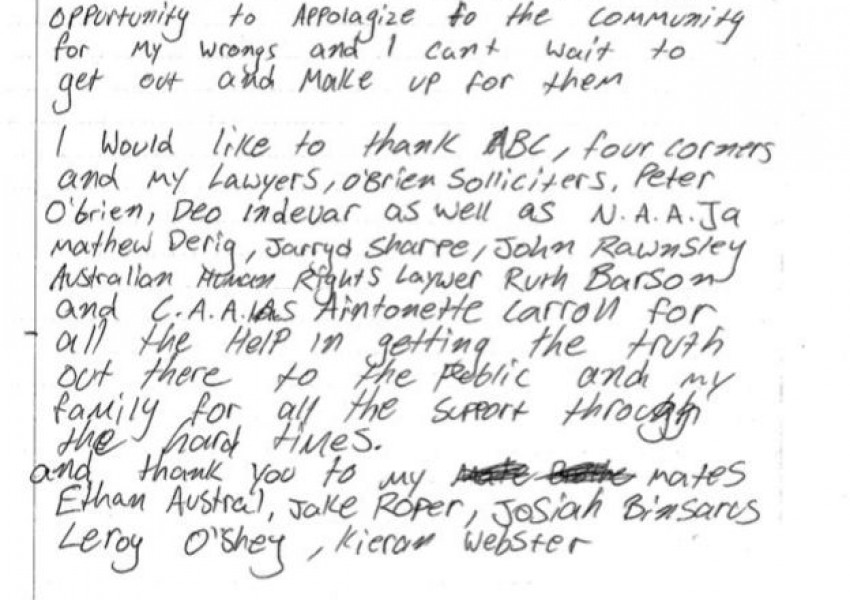 opportunity to Appolagize to the community
for my wrongs and I cant wait to
get out and Make up for them
I would like to thank ABC, four corners
and my Lawyers, O'Brien Solliciters, Peter
O'brien, Deo indevar as well as N.A.A.Ja
Mathew Derig, Jarryd Sharpe, John Rawnsley
Australian Human Rights Laywer Ruth Barson
and C.A.A.LAs Aintonette Carroll for
all the Help in getting the truth
out there to the Public and my
family for all the support through
the hard times.
and thank you to my mates
Ethan Austral, Jake Roper, Josiah Binsarus
Leroy O'Shey, Kieran Webster